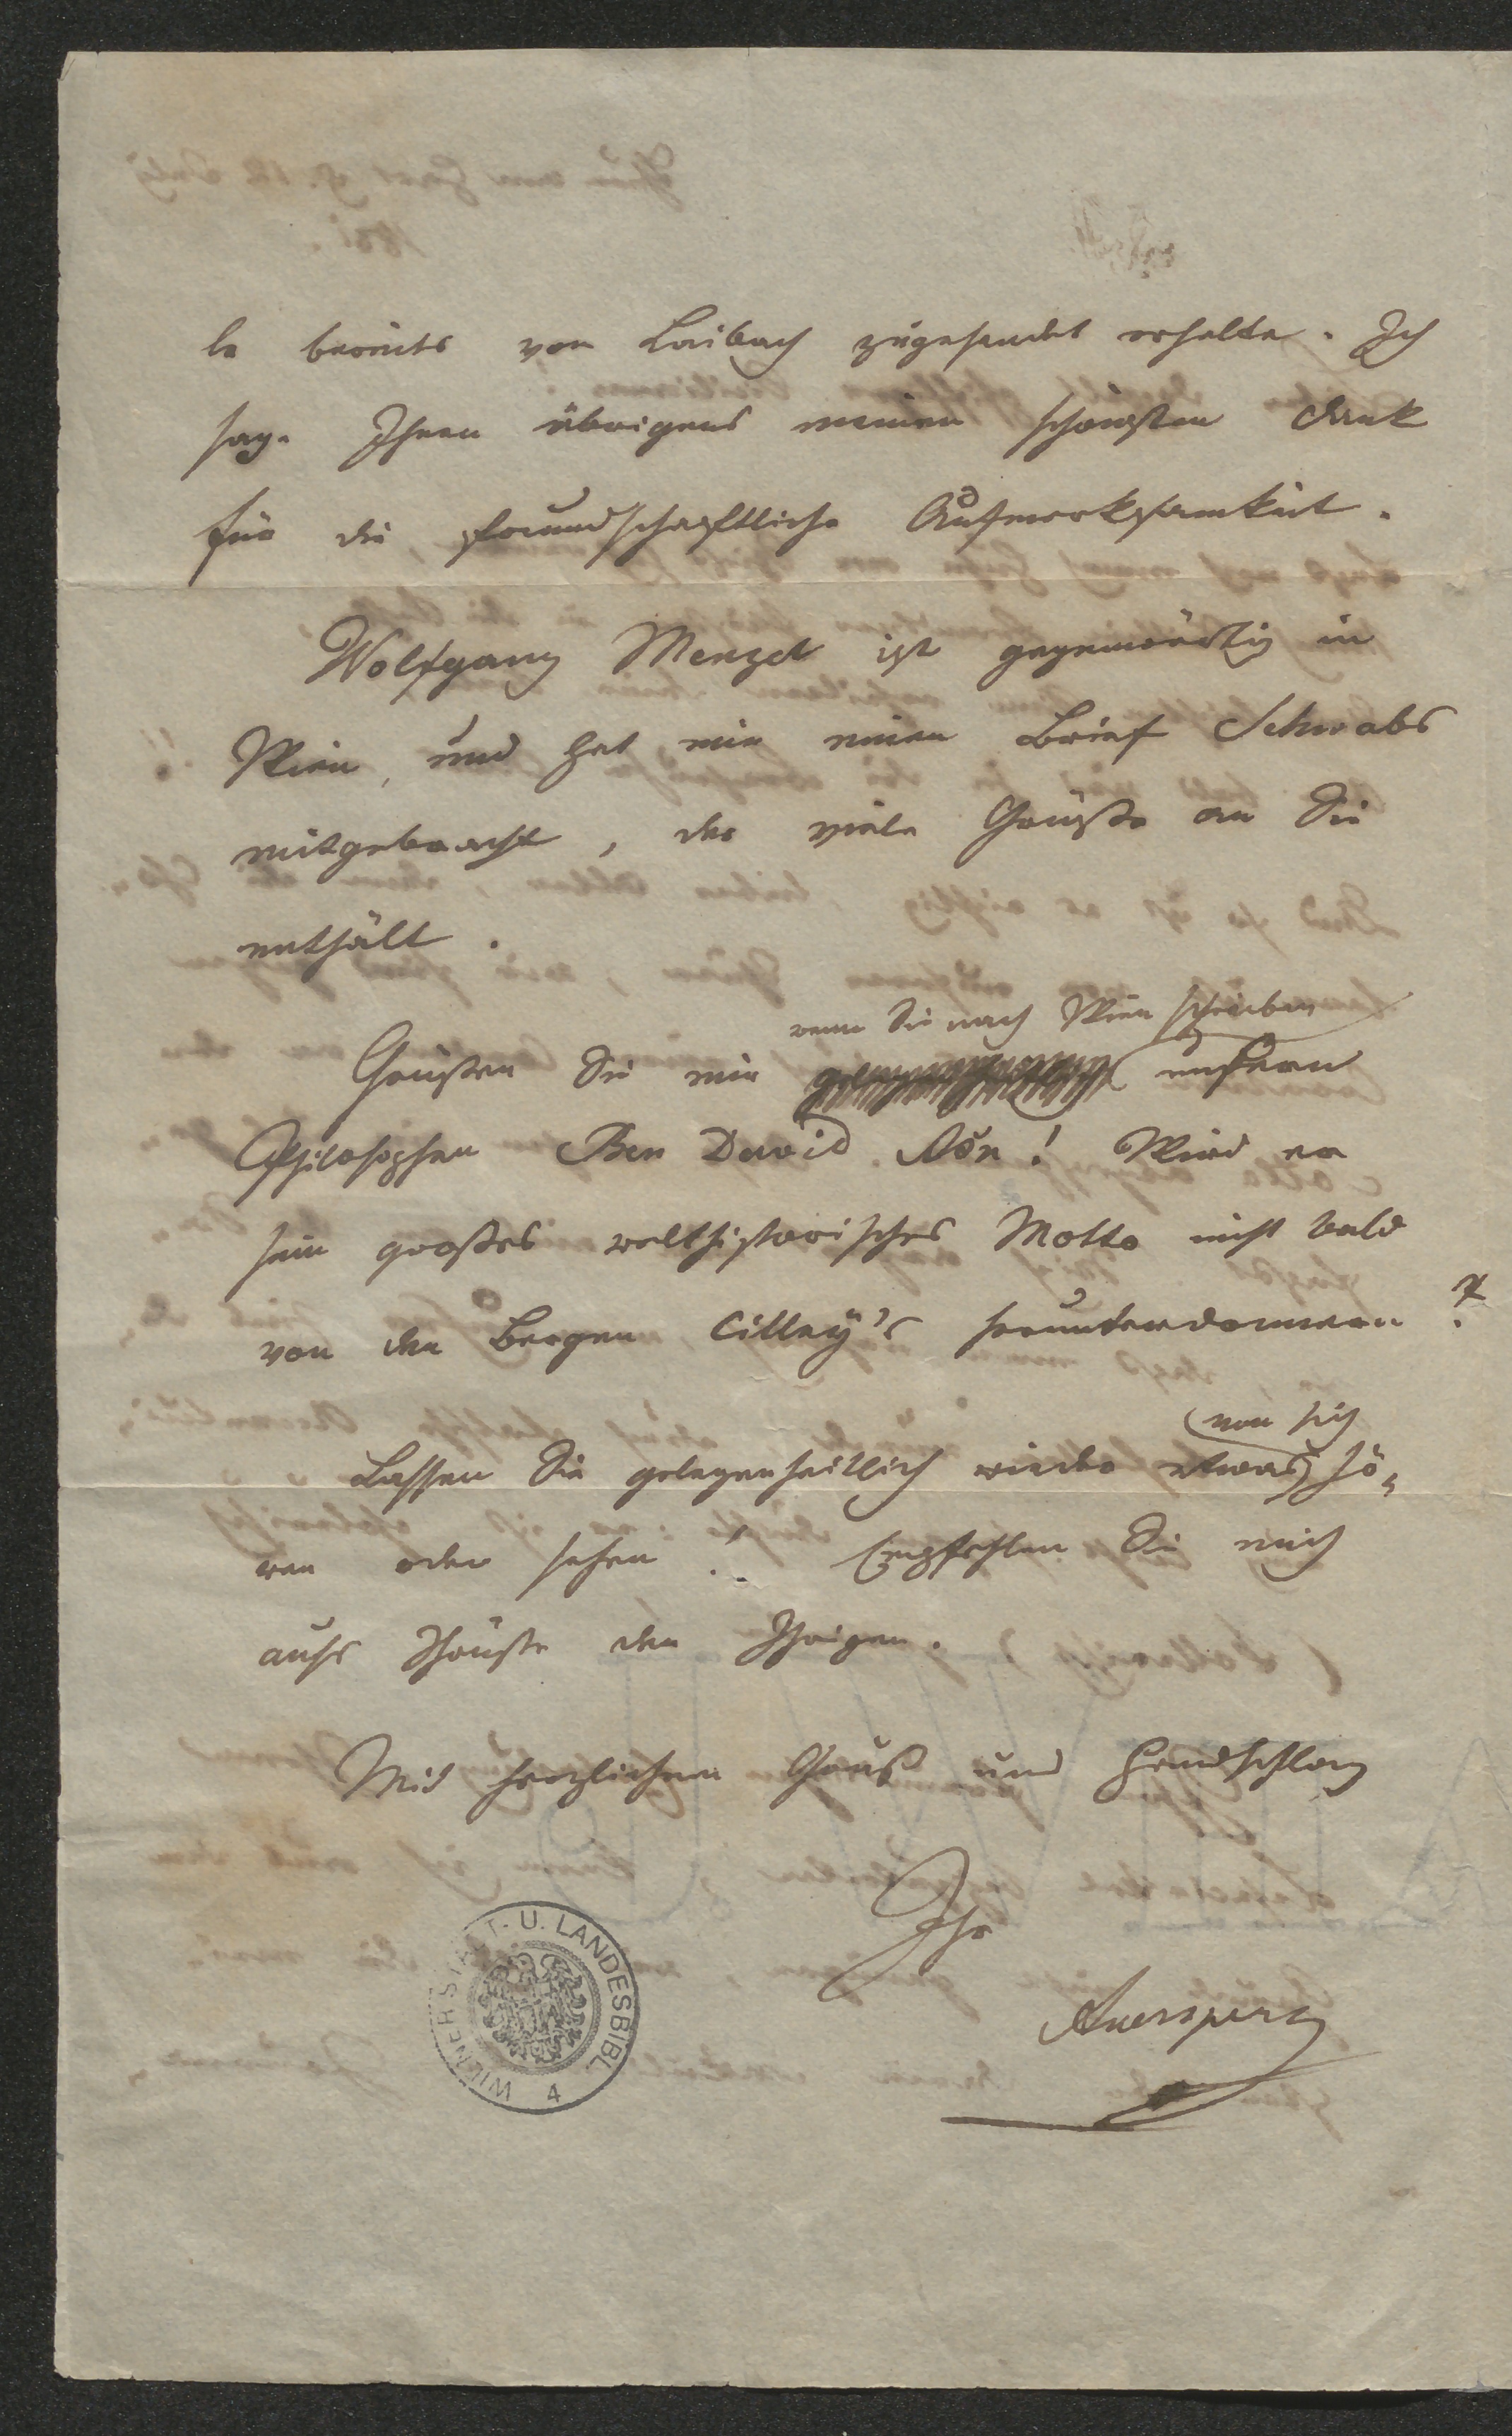 le bereits von Laibach zugesendet erhalte. Ich
sage Ihnen übrigens meinen schönsten Dank
für die freundschaftliche Aufmerksamkeit.
Wolfgang Menzel ist gegenwärtig in
Wien, und hat mir einen Brief Schwabs
mitgebracht, der viele Grüße an Sie
enthält.
wenn Sie nach Wien schreiben
Grüßen Sie mir unsern
Philosophen Ben David! Wird er
sein großes welthistorisches Motto nicht bald
von den Bergen Cilley's herunterdonnern?
von sich
Lassen Sie gelegenheitlich wieder etwas hö-
ren oder sehen! Empfehlen Sie mich
aufs Schönste den Ihrigen.
Mit herzlichem Gruß und Handschlag
Ihr
Auersperg
WIENER STADT- U. LANDESBIBL. 4